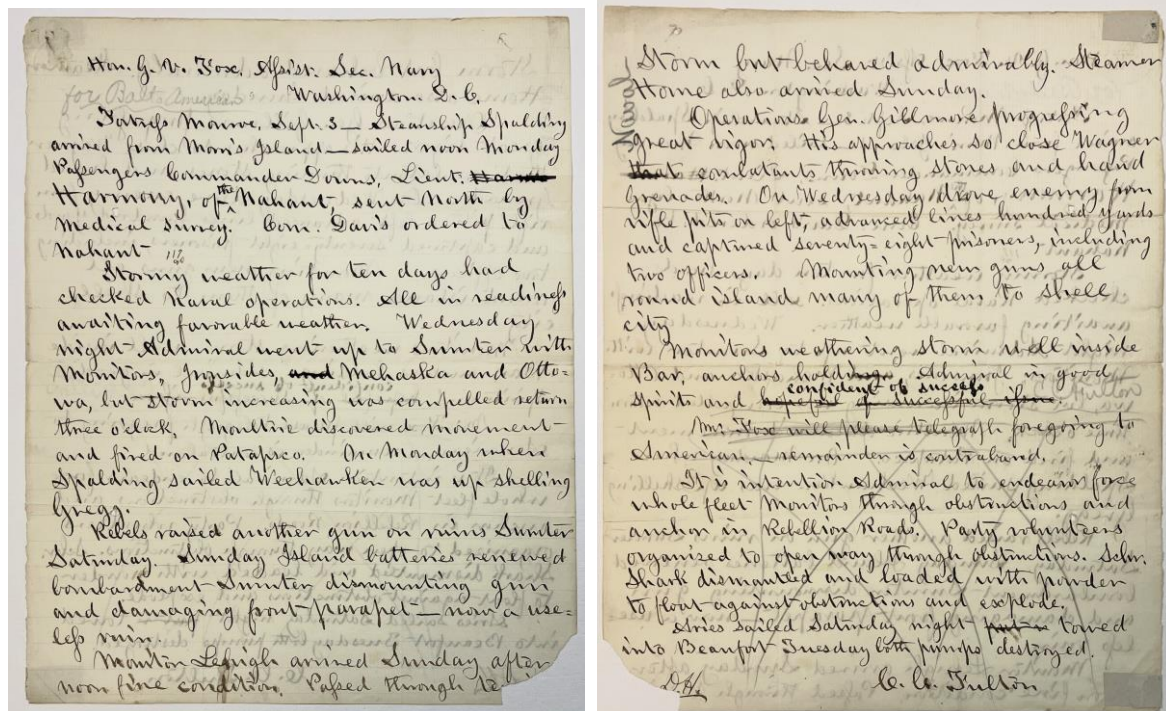 Hon. G. V. Fox, Assist. Sec. Navy
for Balt. American
Washington D.C.
Fortress Monroe, Sept. 3 — Steamship Spalding
arrived from Morris Island — sailed noon Monday
Passengers Commander Downs, Lieut.
Harmony, of the Nahant, sent North by
Medical survey. Com. Davis ordered to
Nahant
Stormy weather for ten days had
checked Naval operations. All in readiness
awaiting favorable weather. Wednesday
night Admiral went up to Sumter with
Monitors, Ironsides, and Mehaska and Otto=
wa, but storm increasing was compelled return
three o'clock. Moultrie discovered movement
and fired on Patapsco. On Monday when
Spalding sailed Weehawken was up shelling
Gregg.
Rebels raised another gun on ruins Sumter
Saturday. Sunday Island batteries renewed
bombardment Sumter dismounting gun
and damaging front parapet — now a use=
less ruin.
Monitor Lehigh arrived Sunday after
noon fine condition. Passed through te
Storm but behaved admirably. Steamer
Home also arrived Sunday.
Operations Gen. Gillmore progressing
great vigor. His approaches so close Wagner
that combatants throwing stones and hand
Grenades. On Wednesday drove enemy from
rifle pits on left, advanced lines hundred yards
and captured seventy=eight prisoners, including
two officers. Mounting new guns all
round island many of them to shell
city
Monitors weathering storm well inside
Bar, anchors holding. Admiral in good
confident of success
spirits and hopeful of successful issue.
Mr. Fox will please telegraph foregoing to
American — remainder is contraband.
It is intention Admiral to endeavor force
whole fleet Monitors through obstructions and
anchor in Rebellion Roads. Party volunteers
organized to open way through obstructions. Schr.
Shark dismantled and loaded with powder
to float against obstructions and explode.
Aries sailed Saturday night towed
into Beaufort Tuesday both pumps destroyed.
D.H. C. C. Fulton